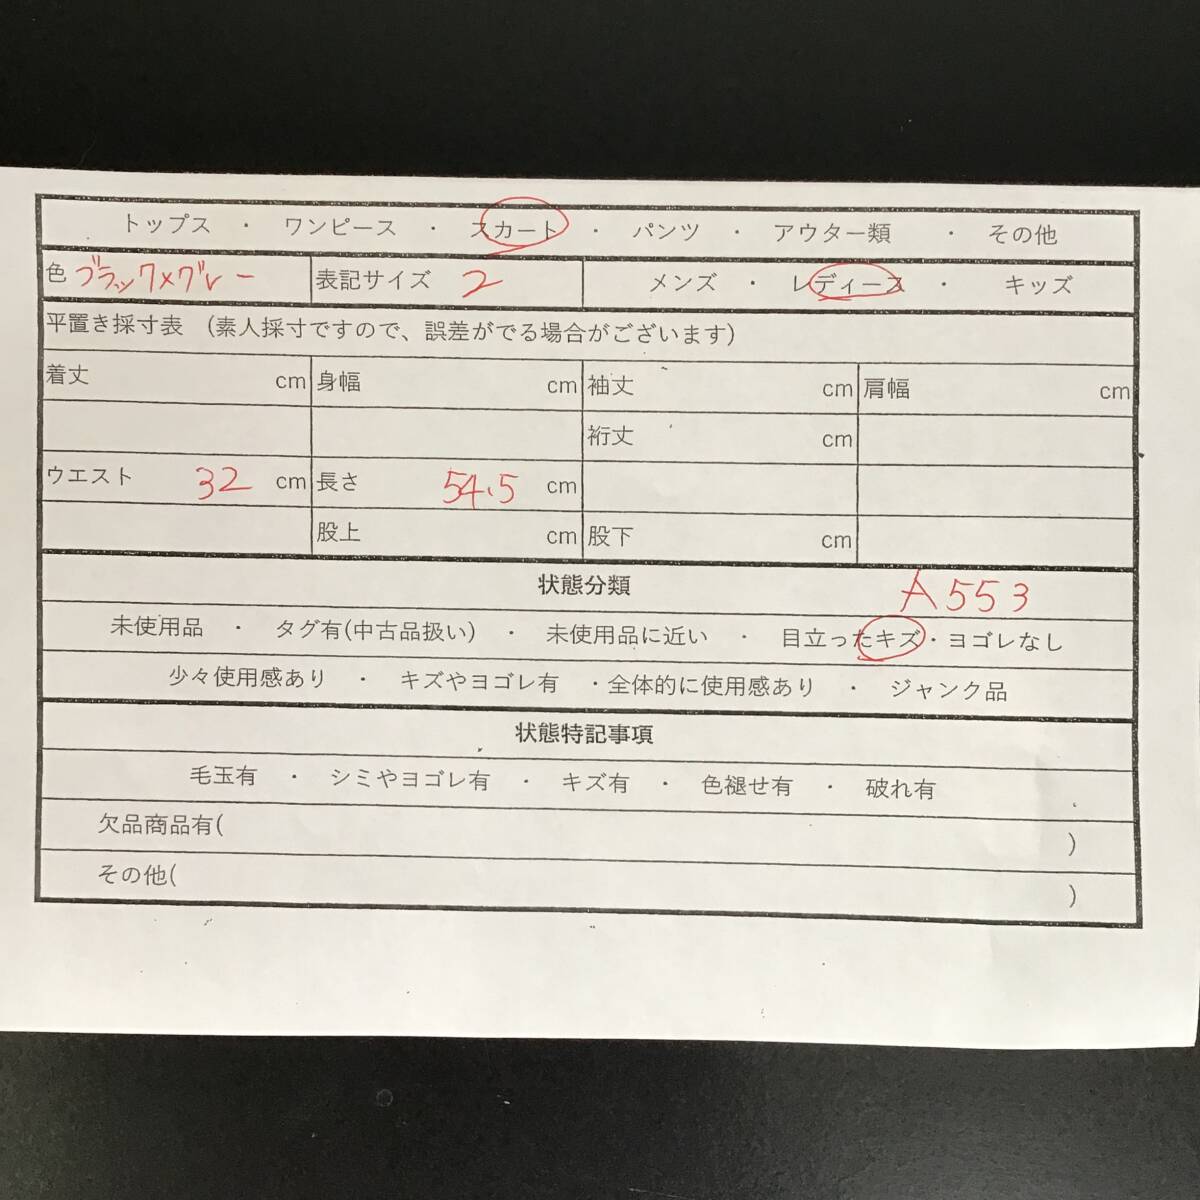 トップス ・ ワンピース ・ スカート ・ パンツ ・ アウター類 ・ その他
色 ブラック×グレー 表記サイズ 2 メンズ ・ レディース ・ キッズ
平置き採寸表 (素人採寸ですので、誤差がでる場合がございます)
着丈 cm 身幅 cm 袖丈 cm 肩幅 cm
裄丈 cm
ウエスト 32 cm 長さ 54.5 cm
股上 cm 股下 cm
状態分類 A553
未使用品 ・ タグ有(中古品扱い) ・ 未使用品に近い ・ 目立ったキズ・ヨゴレなし
少々使用感あり ・ キズやヨゴレ有 ・全体的に使用感あり ・ ジャンク品
状態特記事項
毛玉有 ・ シミやヨゴレ有 ・ キズ有 ・ 色褪せ有 ・ 破れ有
欠品商品有( )
その他( )